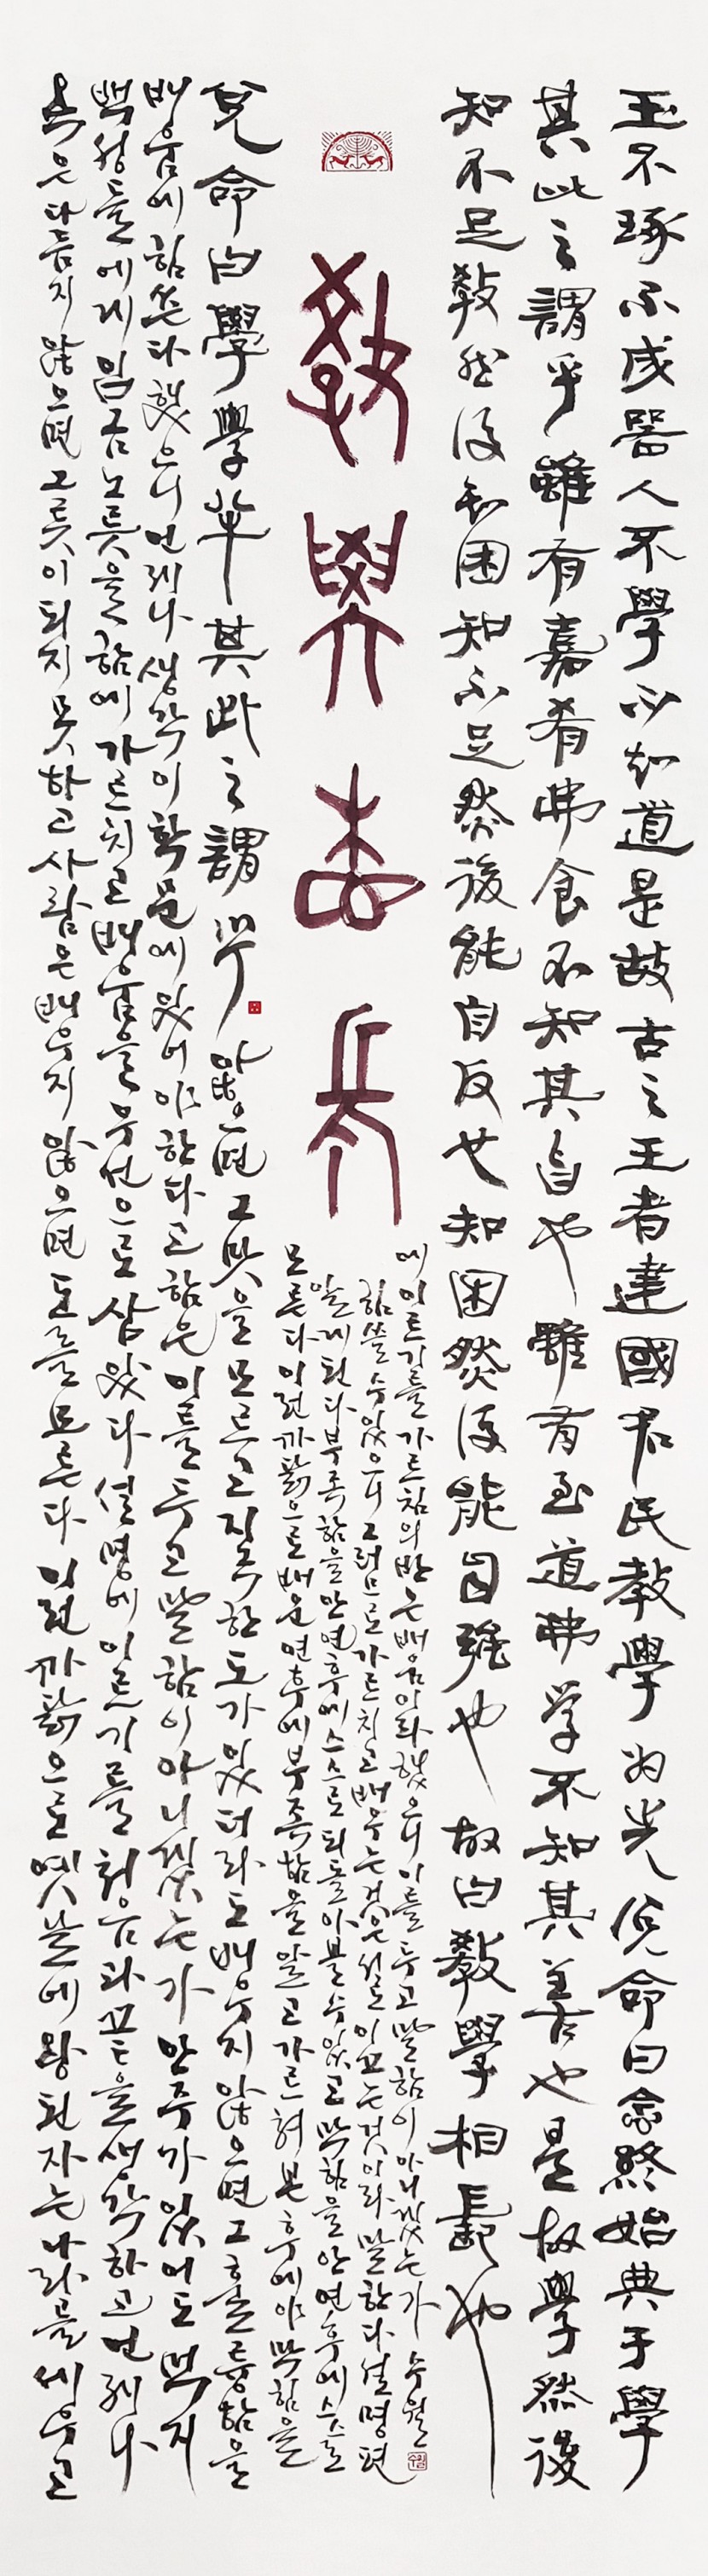 玉不琢不成器人不學不知道是故古之王者建國君民教學為先兌命曰念終始典于學
其此之謂乎雖有嘉肴弗食不知其旨也雖有至道弗学不知其善也是故學然後
知不足敎然後知困知不足然後能自反也知困然後能自强也故曰敎學相長也
敎學相長
兌命曰學學半其此之謂乎
옥은 다듬지 않으면 그릇이 되지 못하고 사람은 배우지 않으면 도를 모른다 이런 까닭으로 옛날에 왕 된 자는 나라를 세우고
백성들에게 임금노릇을 함에 가르치고 배움을 우선으로 삼았다 열명에 이르기를 처음과 끝을 생각하고 언제나
배움에 힘쓴다 했으니 언제나 생각이 학문에 있어야 한다고 함은 이를 두고 말함이 아니겠는가 안주가 있어도 먹지
않으면 그 맛을 모르고 지극한 도가 있더라도 배우지 않으면 그 훌륭함을
모른다 이런 까닭으로 배운 연후에 부족함을 알고 가르쳐 본 후에야 막힘을
알게 된다 부족함을 안 연후에 스스로 되돌아볼 수 있고 막힘을 안 연후에 스스로
힘쓸 수 있으니 그러므로 가르치고 배우는 것은 서로 이끄는 것이라 말한다 열명편
에 이르기를 가르침의 반은 배움이라 했으니 이를 두고 말함이 아니겠는가 수월